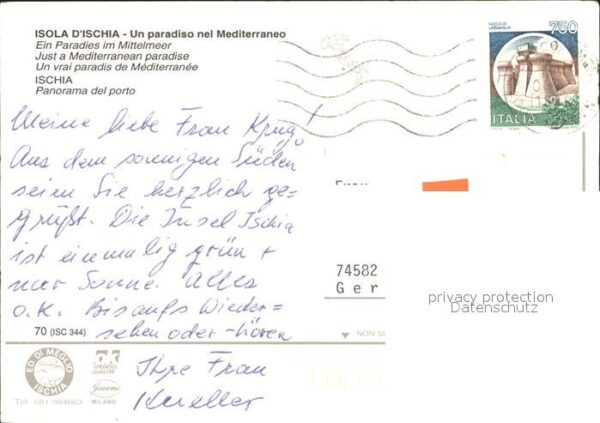 ISOLA D'ISCHIA - Un paradiso nel Mediterraneo
Ein Paradies im Mittelmeer
Just a Mediterranean paradise
Un vrai paradis de Méditerranée
ISCHIA
Panorama del porto
ROCCA DI URBISAGLIA
750
ITALIA
Meine liebe Frau Krug!
Aus dem sonnigen Süden
seien Sie herzlich ge=
grüßt. Die Insel Ischia
ist einmalig grün +
nur Sonne. Alles
o.K. Bis aufs Wieder=
sehen oder -hören
Ihre Frau
Kueller
Frau
74582
Ger
privacy protection
Datenschutz
70 (ISC 344)
NON SC
ED. DI MEGLIO
ISCHIA
OK
Garami
MILANO